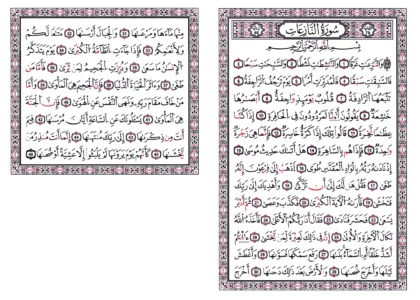 سُورَةُ النَّازِعَاتِ
بِسْمِ ٱللَّهِ ٱلرَّحْمَٰنِ ٱلرَّحِيمِ
وَٱلنَّٰزِعَٰتِ غَرْقًا ١ وَٱلنَّٰشِطَٰتِ نَشْطًا ٢ وَٱلسَّٰبِحَٰتِ سَبْحًا ٣
فَٱلسَّٰبِقَٰتِ سَبْقًا ٤ فَٱلْمُدَبِّرَٰتِ أَمْرًا ٥ يَوْمَ تَرْجُفُ ٱلرَّاجِفَةُ ٦
تَتْبَعُهَا ٱلرَّادِفَةُ ٧ قُلُوبٌ يَوْمَئِذٍ وَاجِفَةٌ ٨ أَبْصَٰرُهَا
خَٰشِعَةٌ ٩ يَقُولُونَ أَءِنَّا لَمَرْدُودُونَ فِى ٱلْحَافِرَةِ ١٠ أَءِذَا كُنَّا
عِظَٰمًا نَّخِرَةً ١١ قَالُوا۟ تِلْكَ إِذًا كَرَّةٌ خَاسِرَةٌ ١٢ فَإِنَّمَا هِىَ زَجْرَةٌ
وَٰحِدَةٌ ١٣ فَإِذَا هُم بِٱلسَّاهِرَةِ ١٤ هَلْ أَتَىٰكَ حَدِيثُ مُوسَىٰٓ ١٥
إِذْ نَادَىٰهُ رَبُّهُۥ بِٱلْوَادِ ٱلْمُقَدَّسِ طُوًى ١٦ ٱذْهَبْ إِلَىٰ فِرْعَوْنَ إِنَّهُۥ
طَغَىٰ ١٧ فَقُلْ هَل لَّكَ إِلَىٰٓ أَن تَزَكَّىٰ ١٨ وَأَهْدِيَكَ إِلَىٰ رَبِّكَ
فَتَخْشَىٰ ١٩ فَأَرَىٰهُ ٱلْءَايَةَ ٱلْكُبْرَىٰ ٢٠ فَكَذَّبَ وَعَصَىٰ ٢١ ثُمَّ أَدْبَرَ
يَسْعَىٰ ٢٢ فَحَشَرَ فَنَادَىٰ ٢٣ فَقَالَ أَنَا۠ رَبُّكُمُ ٱلْأَعْلَىٰ ٢٤ فَأَخَذَهُ ٱللَّهُ
نَكَالَ ٱلْءَاخِرَةِ وَٱلْأُولَىٰٓ ٢٥ إِنَّ فِى ذَٰلِكَ لَعِبْرَةً لِّمَن يَخْشَىٰٓ ٢٦ ءَأَنتُمْ
أَشَدُّ خَلْقًا أَمِ ٱلسَّمَآءُ بَنَىٰهَا ٢٧ رَفَعَ سَمْكَهَا فَسَوَّىٰهَا ٢٨ وَأَغْطَشَ
لَيْلَهَا وَأَخْرَجَ ضُحَىٰهَا ٢٩ وَٱلْأَرْضَ بَعْدَ ذَٰلِكَ دَحَىٰهَآ ٣٠ أَخْرَجَ
مِنْهَا مَآءَهَا وَمَرْعَىٰهَا ٣١ وَٱلْجِبَالَ أَرْسَىٰهَا ٣٢ مَتَٰعًا لَّكُمْ
وَلِأَنْعَٰمِكُمْ ٣٣ فَإِذَا جَآءَتِ ٱلطَّآمَّةُ ٱلْكُبْرَىٰ ٣٤ يَوْمَ يَتَذَكَّرُ
ٱلْإِنسَٰنُ مَا سَعَىٰ ٣٥ وَبُرِّزَتِ ٱلْجَحِيمُ لِمَن يَرَىٰ ٣٦ فَأَمَّا مَن
طَغَىٰ ٣٧ وَءَاثَرَ ٱلْحَيَوٰةَ ٱلدُّنْيَا ٣٨ فَإِنَّ ٱلْجَحِيمَ هِىَ ٱلْمَأْوَىٰ ٣٩ وَأَمَّا
مَنْ خَافَ مَقَامَ رَبِّهِۦ وَنَهَى ٱلنَّفْسَ عَنِ ٱلْهَوَىٰ ٤٠ فَإِنَّ ٱلْجَنَّةَ
هِىَ ٱلْمَأْوَىٰ ٤١ يَسْـَٔلُونَكَ عَنِ ٱلسَّاعَةِ أَيَّانَ مُرْسَىٰهَا ٤٢ فِيمَ
أَنتَ مِن ذِكْرَىٰهَآ ٤٣ إِلَىٰ رَبِّكَ مُنتَهَىٰهَآ ٤٤ إِنَّمَآ أَنتَ مُنذِرُ مَن
يَخْشَىٰهَا ٤٥ كَأَنَّهُمْ يَوْمَ يَرَوْنَهَا لَمْ يَلْبَثُوٓا۟ إِلَّا عَشِيَّةً أَوْ ضُحَىٰهَا ٤٦